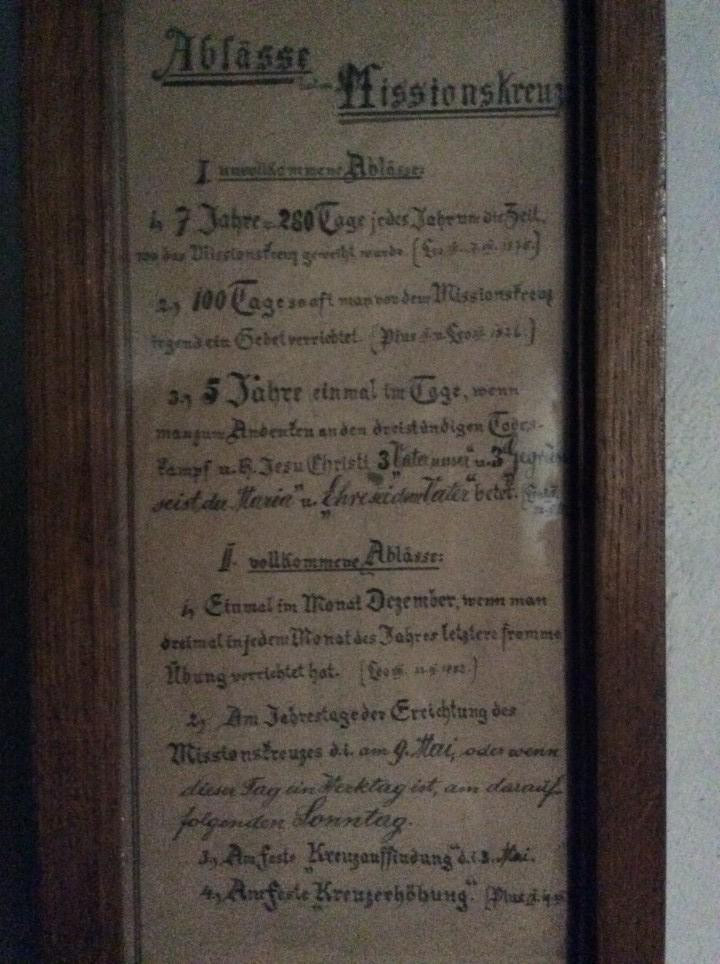 Ablässe
Missionskreuz
I unvollkommene Ablässe:
1, 7 Jahre u. 280 Tage jedes Jahr um die Zeil,
wo das Missionskreuz geweiht wurde. (Leo
2, 100 Tage so oft man vor dem Missionskreuz
irgend ein Gebet verrichtet. (Pius u. Leo 1826.)
3, 5 Jahre einmal im Tage, wenn
man zum Andenken an den dreistündigen Todes-
kampf u. H. Jesu Christi 3 "Vater unser" u. 3 "Gegrüs
seist du Maria" u. "Ehre sei dem Vater" betet.
II. vollkommene Ablässe:
1, Einmal im Monat Dezember, wenn man
dreimal in jedem Monat des Jahres letztere fromme
Übung verrichtet hat. (Leo
2, Am Jahrestage der Errichtung des
Missionskreuzes d.i. am 9. Mai, oder wenn
dieser Tag ein Werktag ist, am darauf-
folgenden Sonntag.
3, Am Feste "Kreuzauffindung" d.i. 3. Mai.
4, Am Feste "Kreuzerhöhung." (Pius